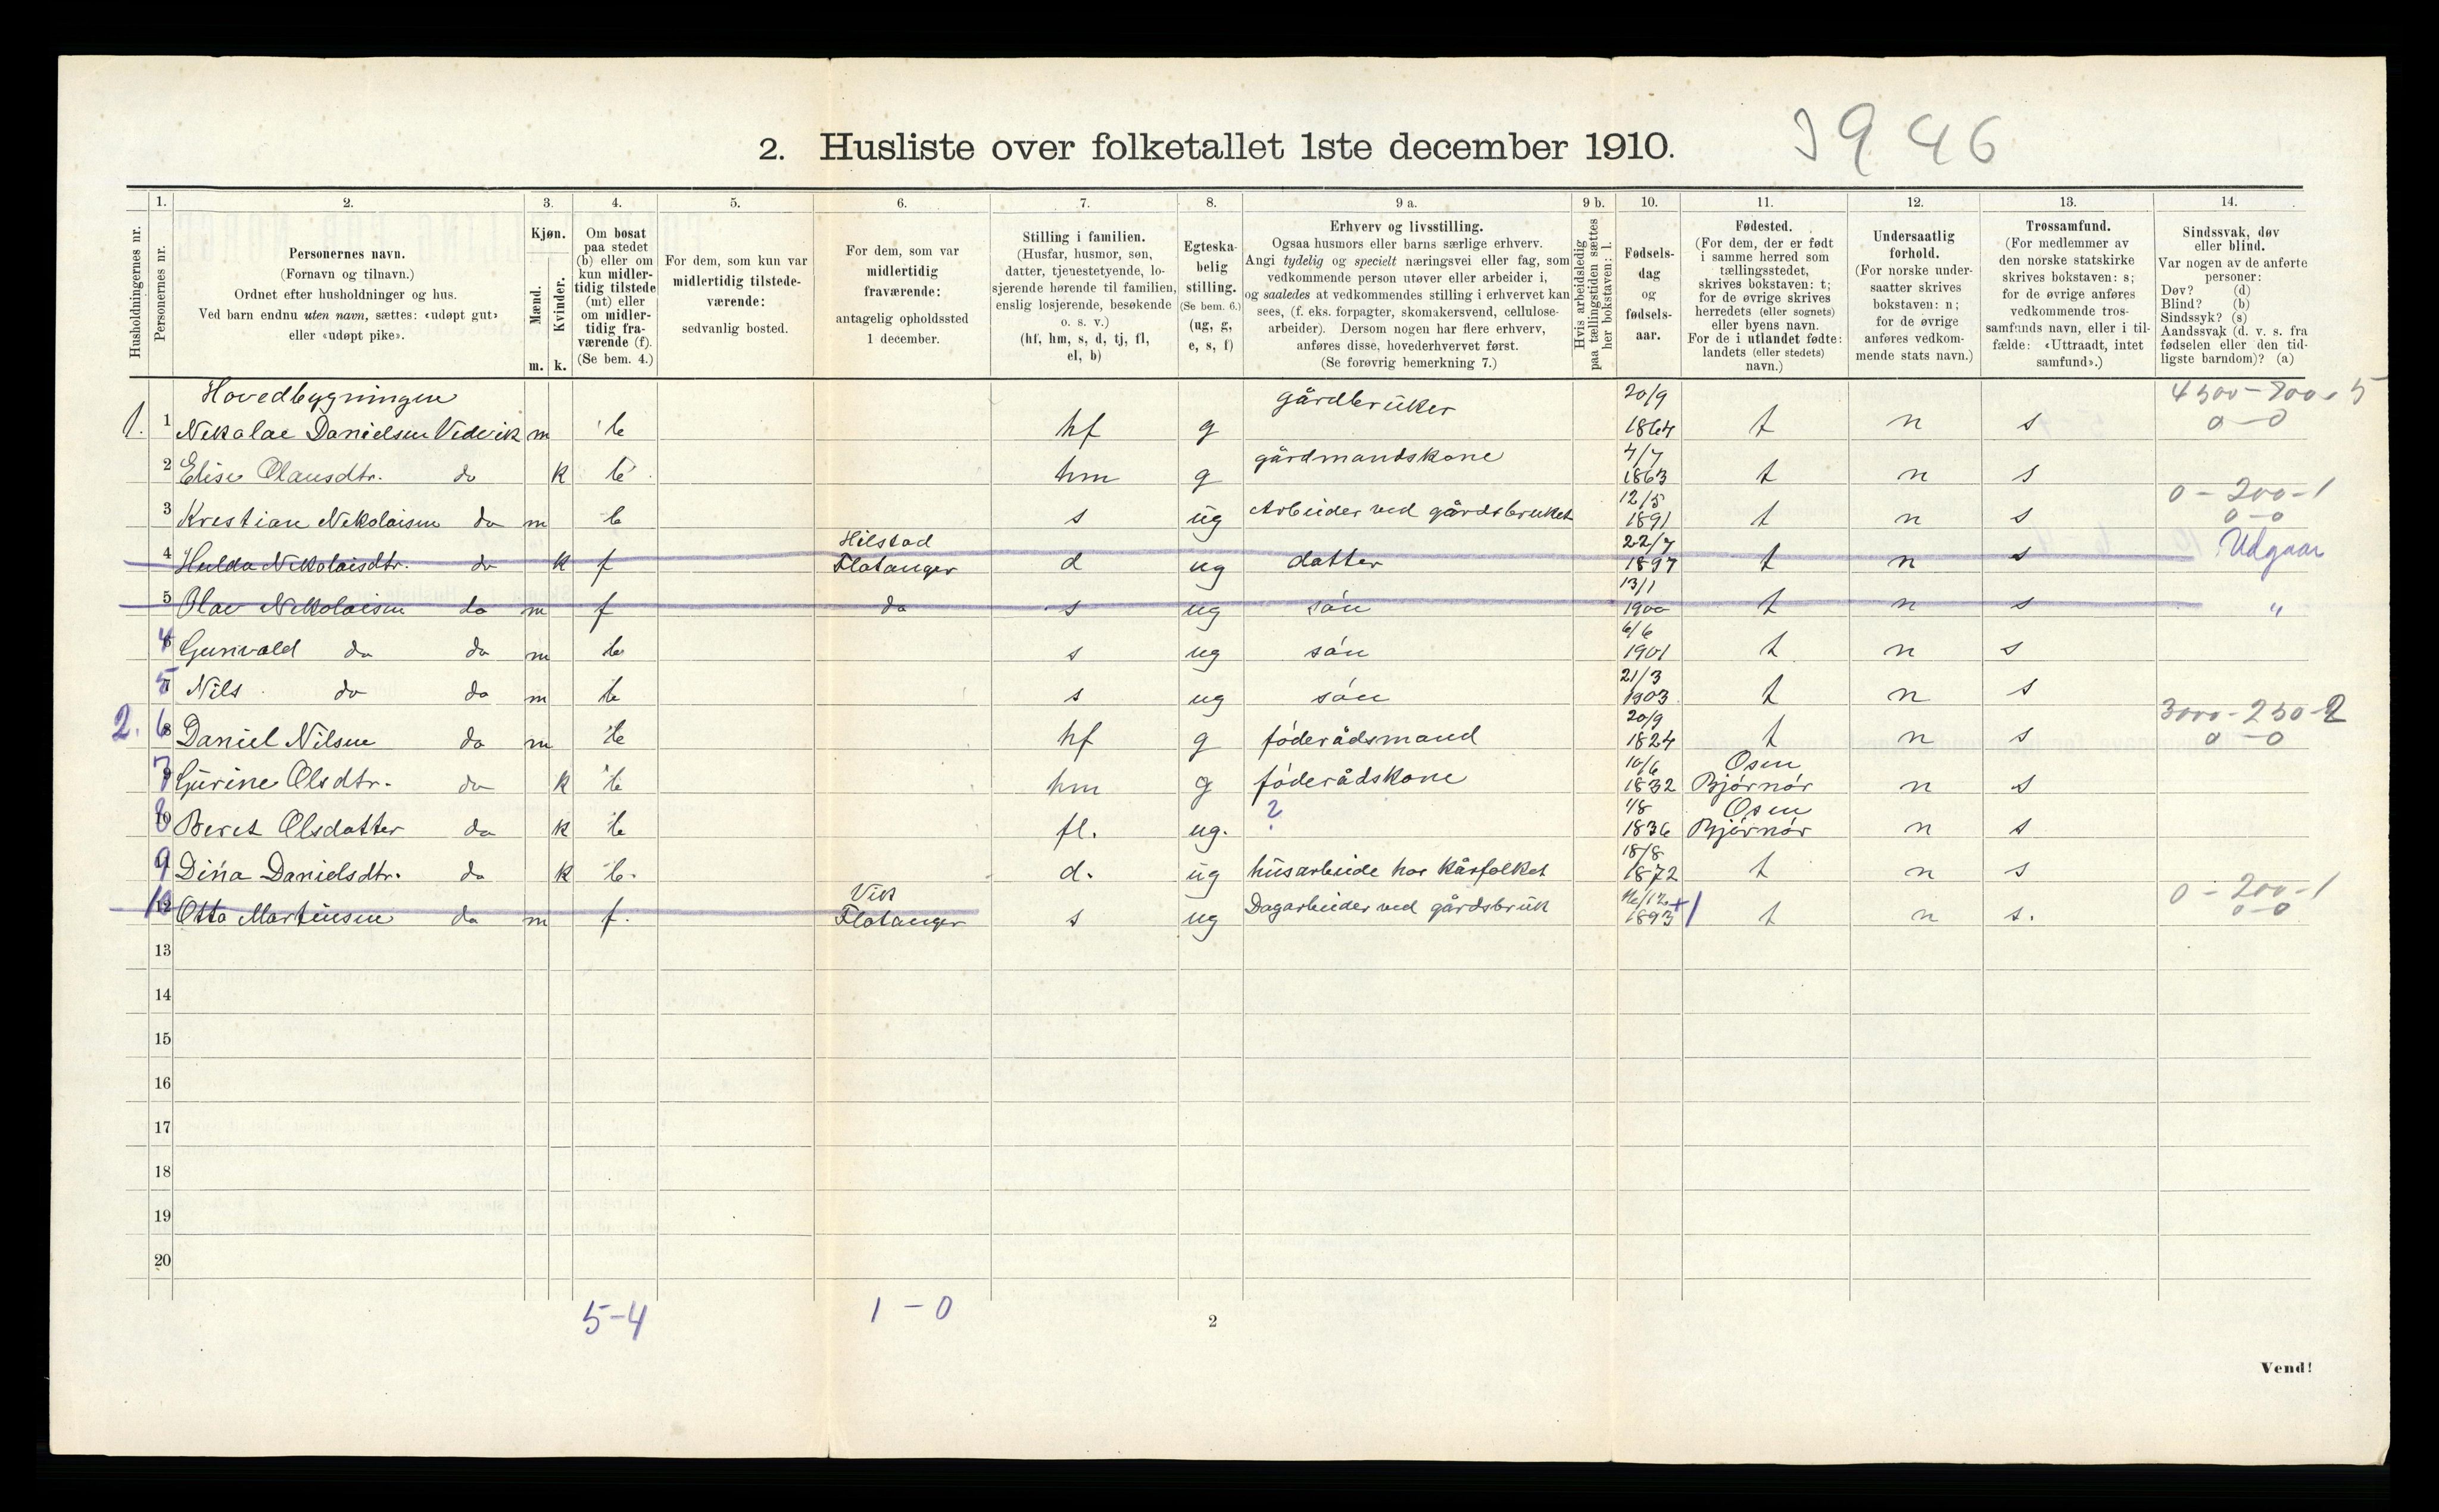 2. Husliste over folketallet 1ste december 1910. 3946
Husholdningernes nr.
1.
Personernes nr.
2.
Personernes navn.
(Fornavn og tilnavn.)
Ordnet efter husholdninger og hus.
Ved barn endnu uten navn, sættes: «udøpt gut»
eller «udøpt pike».
3.
Kjøn.
Mænd.
Kvinder.
m. k.
4.
Om bosat
paa stedet
(b) eller om
kun midler-
tidig tilstede
(mt) eller
om midler-
tidig fra-
værende (f).
(Se bem. 4.)
5.
For dem, som kun var
midlertidig tilstede-
værende:
sedvanlig bosted.
6.
For dem, som var
midlertidig
fraværende:
antagelig opholdssted
1 december.
7.
Stilling i familien.
(Husfar, husmor, søn,
datter, tjenestetyende, lo-
sjerende hørende til familien,
enslig losjerende, besøkende
o. s. v.)
(hf, hm, s, d, tj, fl,
el, b)
8.
Egteska-
belig
stilling.
(Se bem. 6.)
(ug, g,
e, s, f)
9 a.
Erhverv og livsstilling.
Ogsaa husmors eller barns særlige erhverv.
Angi tydelig og specielt næringsvei eller fag, som
vedkommende person utøver eller arbeider i,
og saaledes at vedkommendes stilling i erhvervet kan
sees, (f. eks. forpagter, skomakersvend, cellulose-
arbeider). Dersom nogen har flere erhverv,
anføres disse, hovederhvervet først.
(Se forøvrig bemerkning 7.)
9 b.
Hvis arbeidsledig
paa tællingstiden sættes
her bokstaven: l.
10.
Fødsels-
dag
og
fødsels-
aar.
11.
Fødested.
(For dem, der er født
i samme herred som
tællingsstedet,
skrives bokstaven: t;
for de øvrige skrives
herredets (eller sognets)
eller byens navn.
For de i utlandet fødte:
landets (eller stedets)
navn.)
12.
Undersaatlig
forhold.
(For norske under-
saatter skrives
bokstaven: n;
for de øvrige
anføres vedkom-
mende stats navn.)
13.
Trossamfund.
(For medlemmer av
den norske statskirke
skrives bokstaven: s;
for de øvrige anføres
vedkommende tros-
samfunds navn, eller i til-
fælde: «Uttraadt, intet
samfund».)
14.
Sindssvak, døv
eller blind.
Var nogen av de anførte
personer:
Døv? (d)
Blind? (b)
Sindssyk? (s)
Aandssvak (d. v. s. fra
fødselen eller den tid-
ligste barndom)? (a)
Hovedbygningen gårdbrüker 20/9
1. 1 Nikolae Danielsen Vedvik m b hf g 1864 t n s 0-0
2 Elise Olausdtr. do k b hm g gårdmandskone 4/7 1863 t n s
3 Kristian Nikolaisen do m b s ug Arbeider ved gårdsbruket 12/5 1891 t n s 0-200-1 0-0
4 Hulda Nikolaisdtr. do k f Hilstad Flatanger d ug datter 22/7 1897 t n s Udgaar
5 Olav Nikolaisen do m f do s ug sön 13/1 1900 t n s "
4 6 Gunvald do do m b s ug sön 6/6 1901 t n s
5 7 Nils do do m b s ug sön 21/3 1903 t n s
2. 6 8 Daniel Nilsen do m b hf g föderådsmand 20/9 1824 t n s 3000-250-2 0-0
7 9 Gurine Olsdtr. do k b hm g föderådskone 10/6 1832 Osen Bjørnør n s
8 10 Beret Olsdatter do k b fl. ug. ? 1/8 1836 Osen Bjørnør n s
9 11 Dina Danielsdtr. do k b. d. ug husarbeide hos kårfolket 18/8 1872 t n s
10 12 Otto Martinsen do m f. Vik Flatanger s ug Dagarbeider ved gårdsbrük 1893 t n s. 0-200-1 0-0
13
14
15
16
17
18
19
20
5-4 1-0
2
Vend!